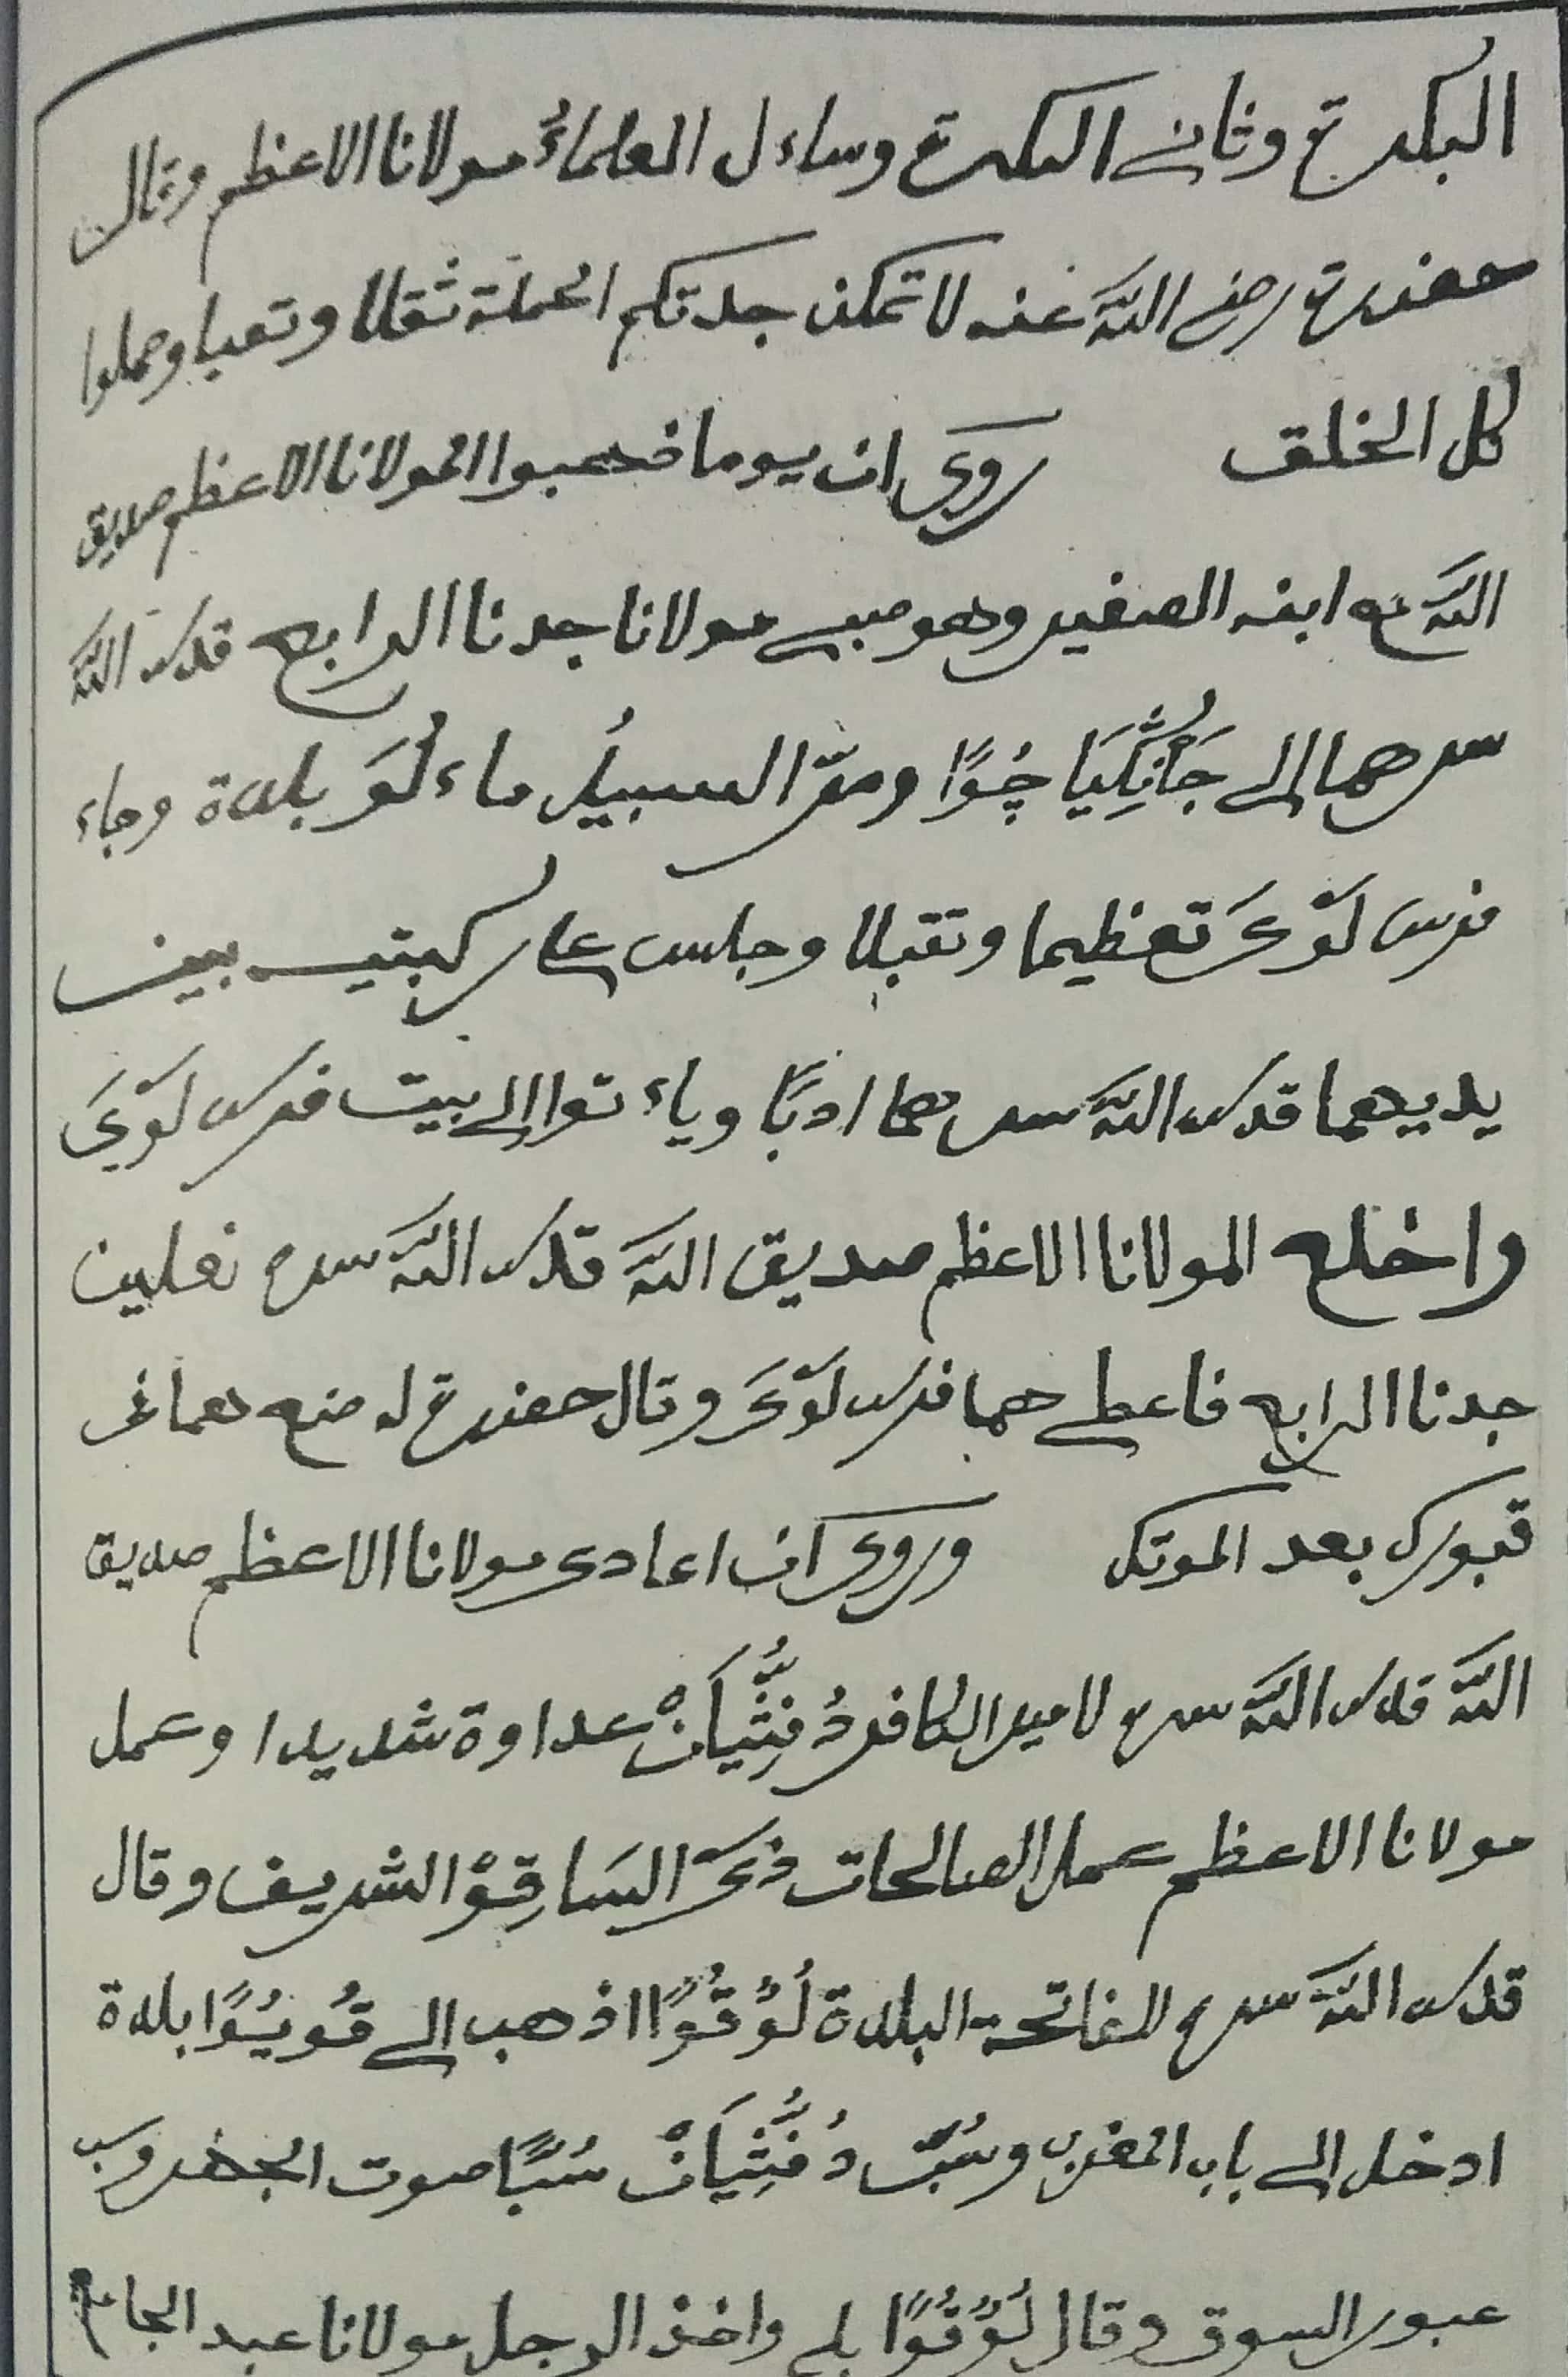 البكرة وثاني البكرة وساءل العلماءُ مولانا الاعظم وقال
حضرة رضي اللّٰه عنه لا تمكن جدتكم الحملة ثقلا وتعبا وحملوا
كل الخلق روى ان يوما ذهبوا المولانا الاعظم صديق
اللّٰه مع ابنه الصغير وهو صبي مولانا جدنا الرابع قدس اللّٰه
سرهما الى جَانْكِيَا چُوًا ومرّ السبيلُ ماء لُوَ بلدة وجاء
فرس لوّىَ تعظيما وتقبلا وجلس على ركبتيه بين
يديهما قدس اللّٰه سرهما ادبًا وياءتوا الى بيت فرس لوّىَ
واخلع المولانا الاعظم صديق اللّٰه قدس اللّٰه سره نعلين
جدنا الرابع فاعطى هما فرس لوّىَ وقال حضرة له ضع هما في
قبورك بعد الموتك وروى ان اعادى مولانا الاعظم صديق
اللّٰه قدس اللّٰه سره لامير الكافر دُ فِثِّيَانْ عداوة شديدا وعمل
مولانا الاعظم عمل الصالحات السَاقِوْ الشريف وقال
قدس اللّٰه سره للفاتحة البلدة لُوْ قُوًا اذهب الى قُويُوًا بلدة
ادخل الى باب المغرب وسُبّ دُ فِثِّيَانْ سُبًّا صوت الجهر وسب
عبور السوق وقال لُوْقُوًا بلى واخذ الرجل مولانا عبد